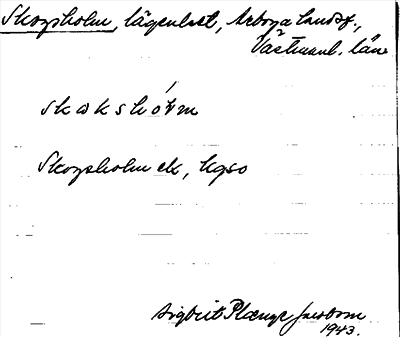 Skogsholm, lägenhet, Arboga landsf.,
Västmanl. län
skakshó̀lm
Skogsholm ek, hgso
Sigbrit Plænge Jacobson
1943.